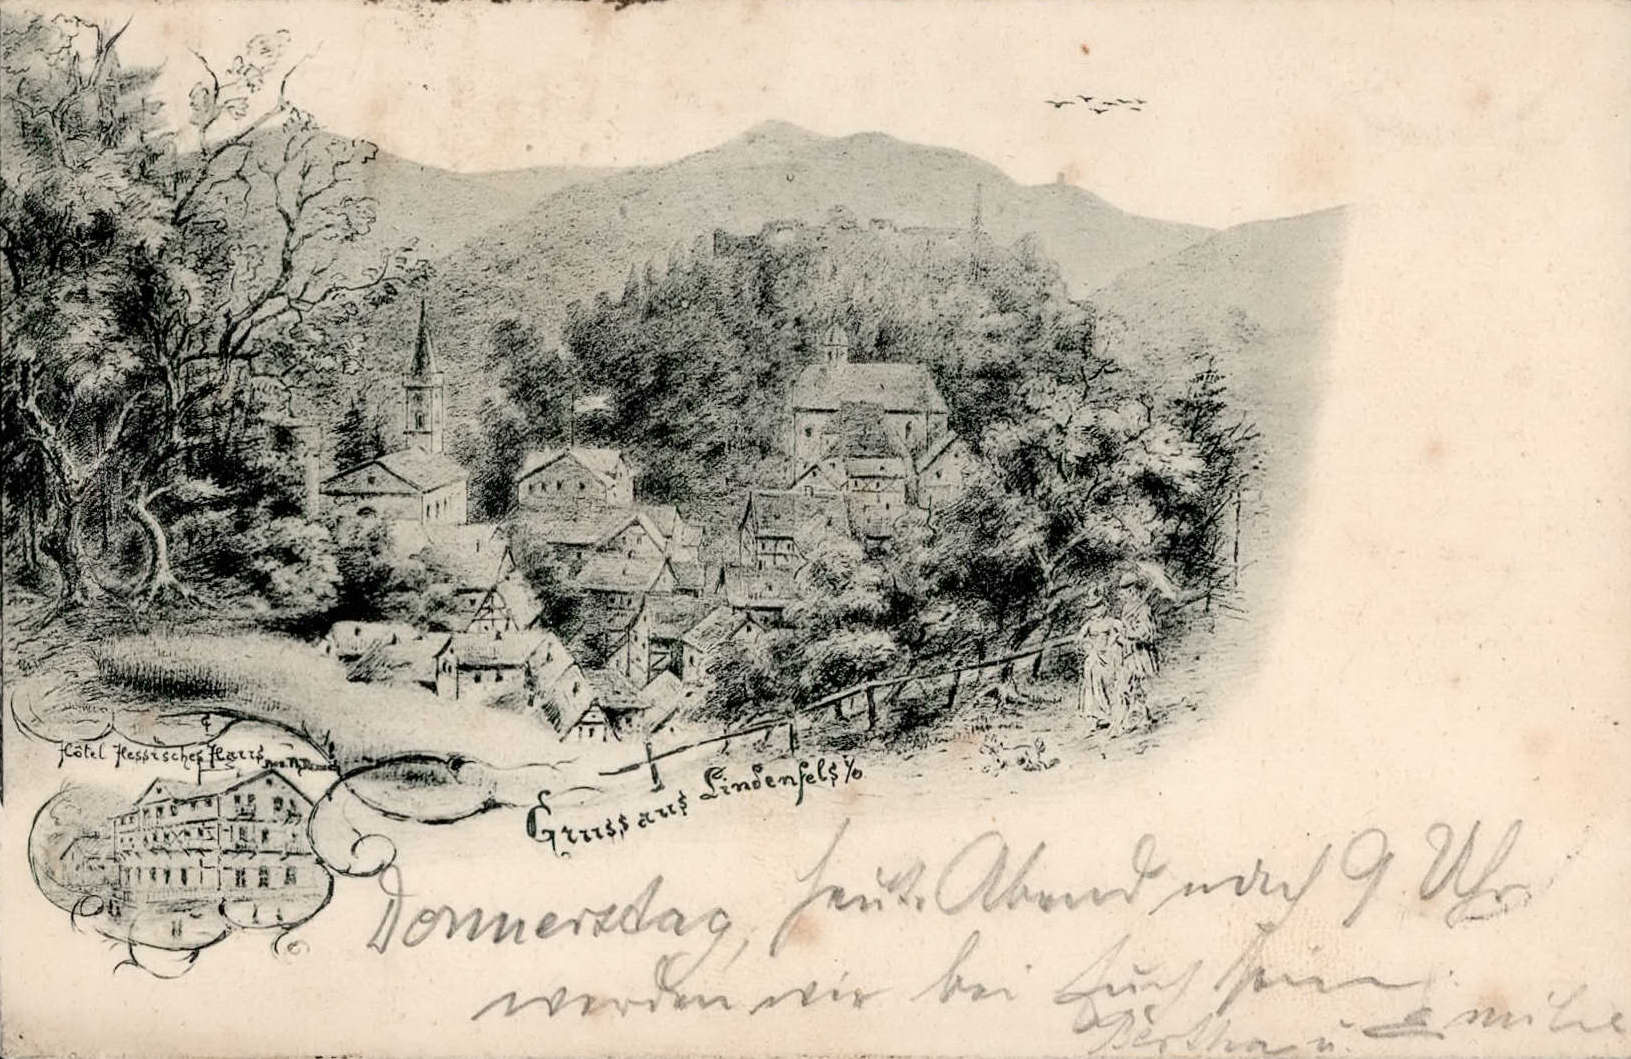 Hôtel Hessisches Haus
Gruss aus Lindenfels i/O
Donnerstag, heute Abend nach 9 Uhr
werden wir bei Euch sein.
Bertha u. Emilie